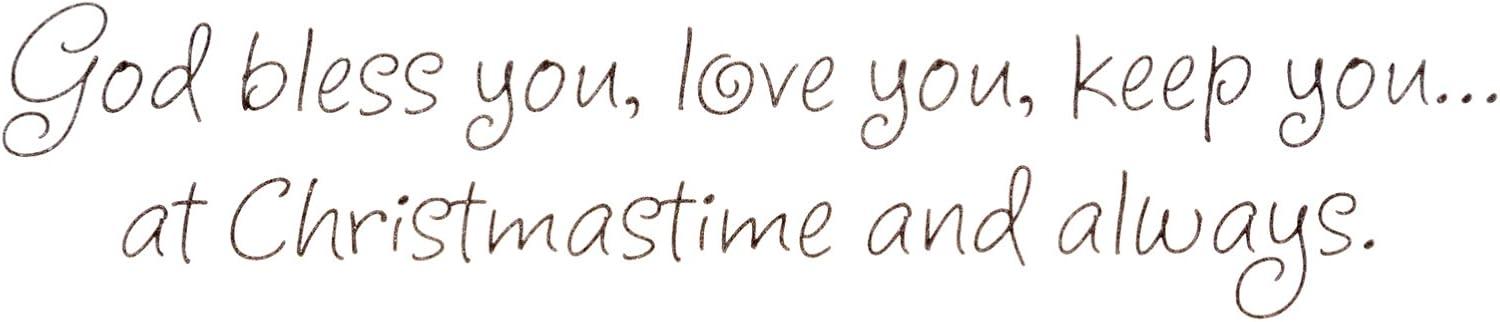 God bless you, love you, keep you...
at Christmastime and always.